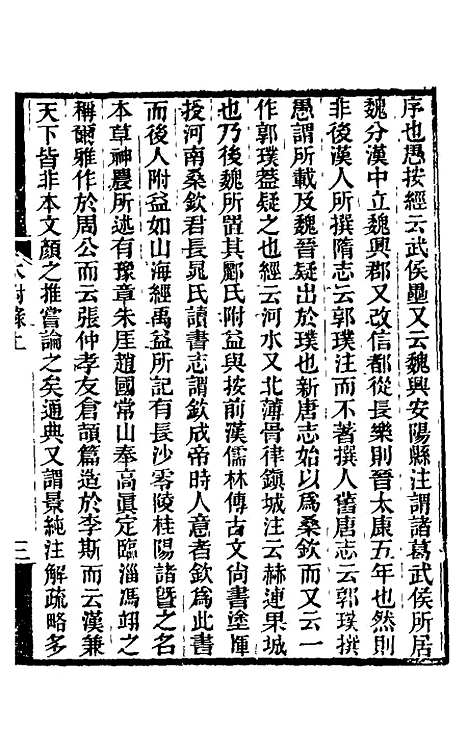 序也愚按經云武侯壘又云魏興安陽縣注謂諸葛武侯所居
魏分漢中立魏興郡又改信都從長樂則晉太康五年也然則
非後漢人所撰隋志云郭璞注而不著撰人舊唐志云郭璞撰
愚謂所載及魏晉疑出於璞也新唐志始以爲桑欽而又云一
作郭璞葢疑之也經云河水又北薄骨律鎭城注云赫連果城
也乃後魏所置其酈氏附益與按前漢儒林傳古文尙書塗惲
授河南桑欽君長晁氏讀書志謂欽成帝時人意者欽爲此書
而後人附益如山海經禹益所記有長沙零陵桂陽諸曁之名
本草神農所述有豫章朱厓趙國常山奉高眞定臨淄馮翊之
稱爾雅作於周公而云張仲孝友倉頡篇造於李斯而云漢兼
天下皆非本文顏之推嘗論之矣通典又謂景純注解疏略多
附錄上
三